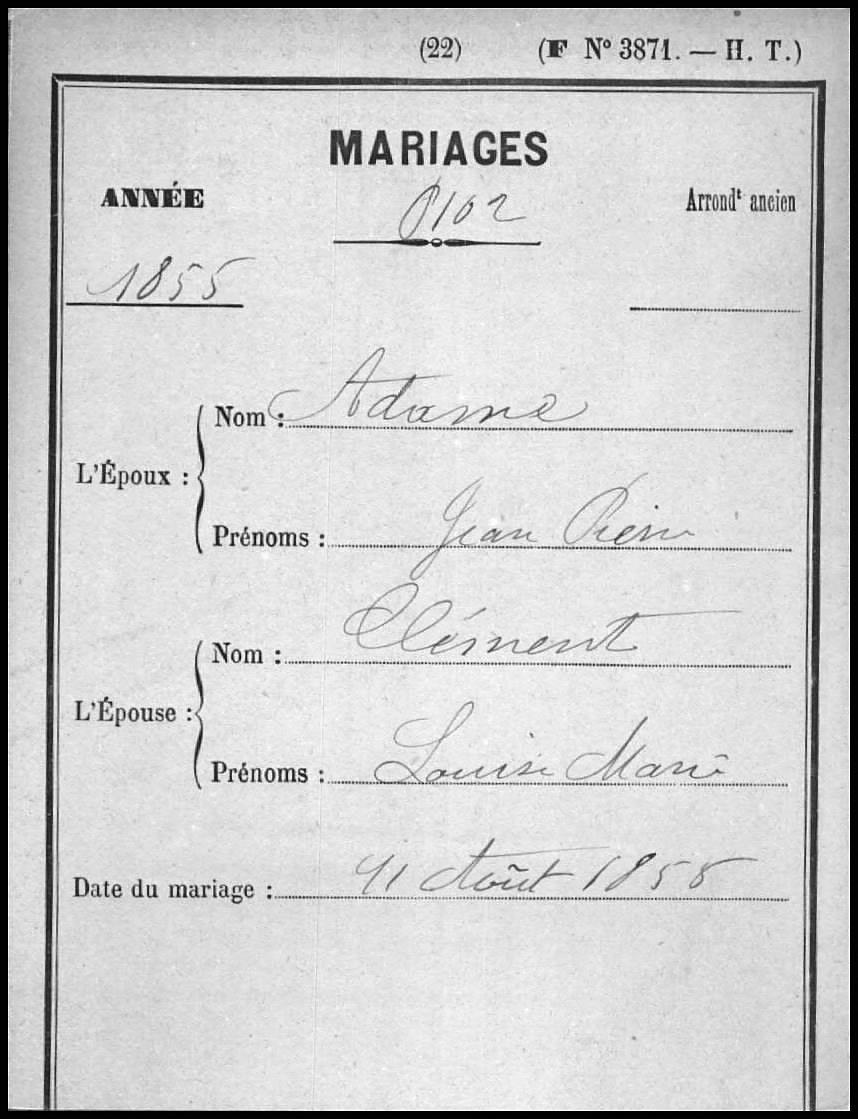 (22) (F N° 3871. — H. T.)
MARIAGES
ANNÉE Arrondt ancien
1855
L'Époux :
Nom : Adame
Prénoms : Jean Pierre
L'Épouse :
Nom : Clément
Prénoms : Louise Marie
Date du mariage : Août 1855